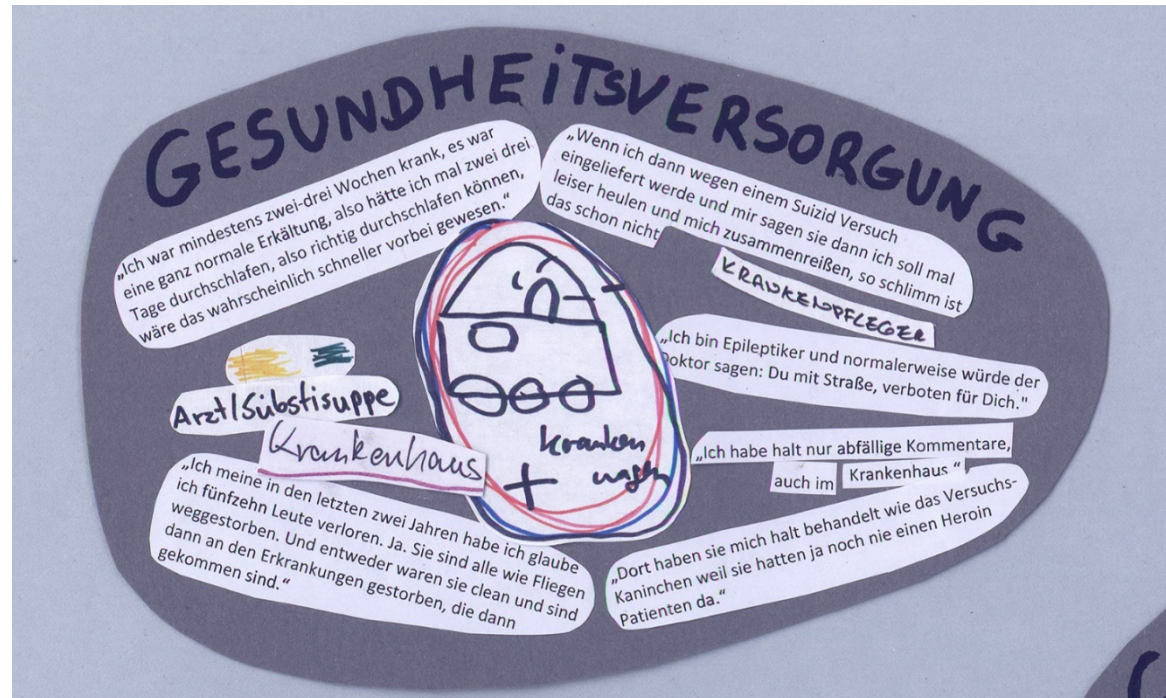 GESUNDHEiTSVERSORGUNG
„Ich war mindestens zwei-drei Wochen krank, es war
eine ganz normale Erkältung, also hätte ich mal zwei drei
Tage durchschlafen, also richtig durchschlafen können,
wäre das wahrscheinlich schneller vorbei gewesen.“
„Wenn ich dann wegen einem Suizid Versuch
eingeliefert werde und mir sagen sie dann ich soll mal
leiser heulen und mich zusammenreißen, so schlimm ist
das schon nicht
KRANKENPFLEGER
„Ich bin Epileptiker und normalerweise würde der
Doktor sagen: Du mit Straße, verboten für Dich."
Arzt/Substisuppe
Krankenhaus
kranken
wagen
„Ich habe halt nur abfällige Kommentare,
auch im Krankenhaus “
„Ich meine in den letzten zwei Jahren habe ich glaube
ich fünfzehn Leute verloren. Ja. Sie sind alle wie Fliegen
weggestorben. Und entweder waren sie clean und sind
dann an den Erkrankungen gestorben, die dann
gekommen sind.“
„Dort haben sie mich halt behandelt wie das Versuchs-
Kaninchen weil sie hatten ja noch nie einen Heroin
Patienten da.“